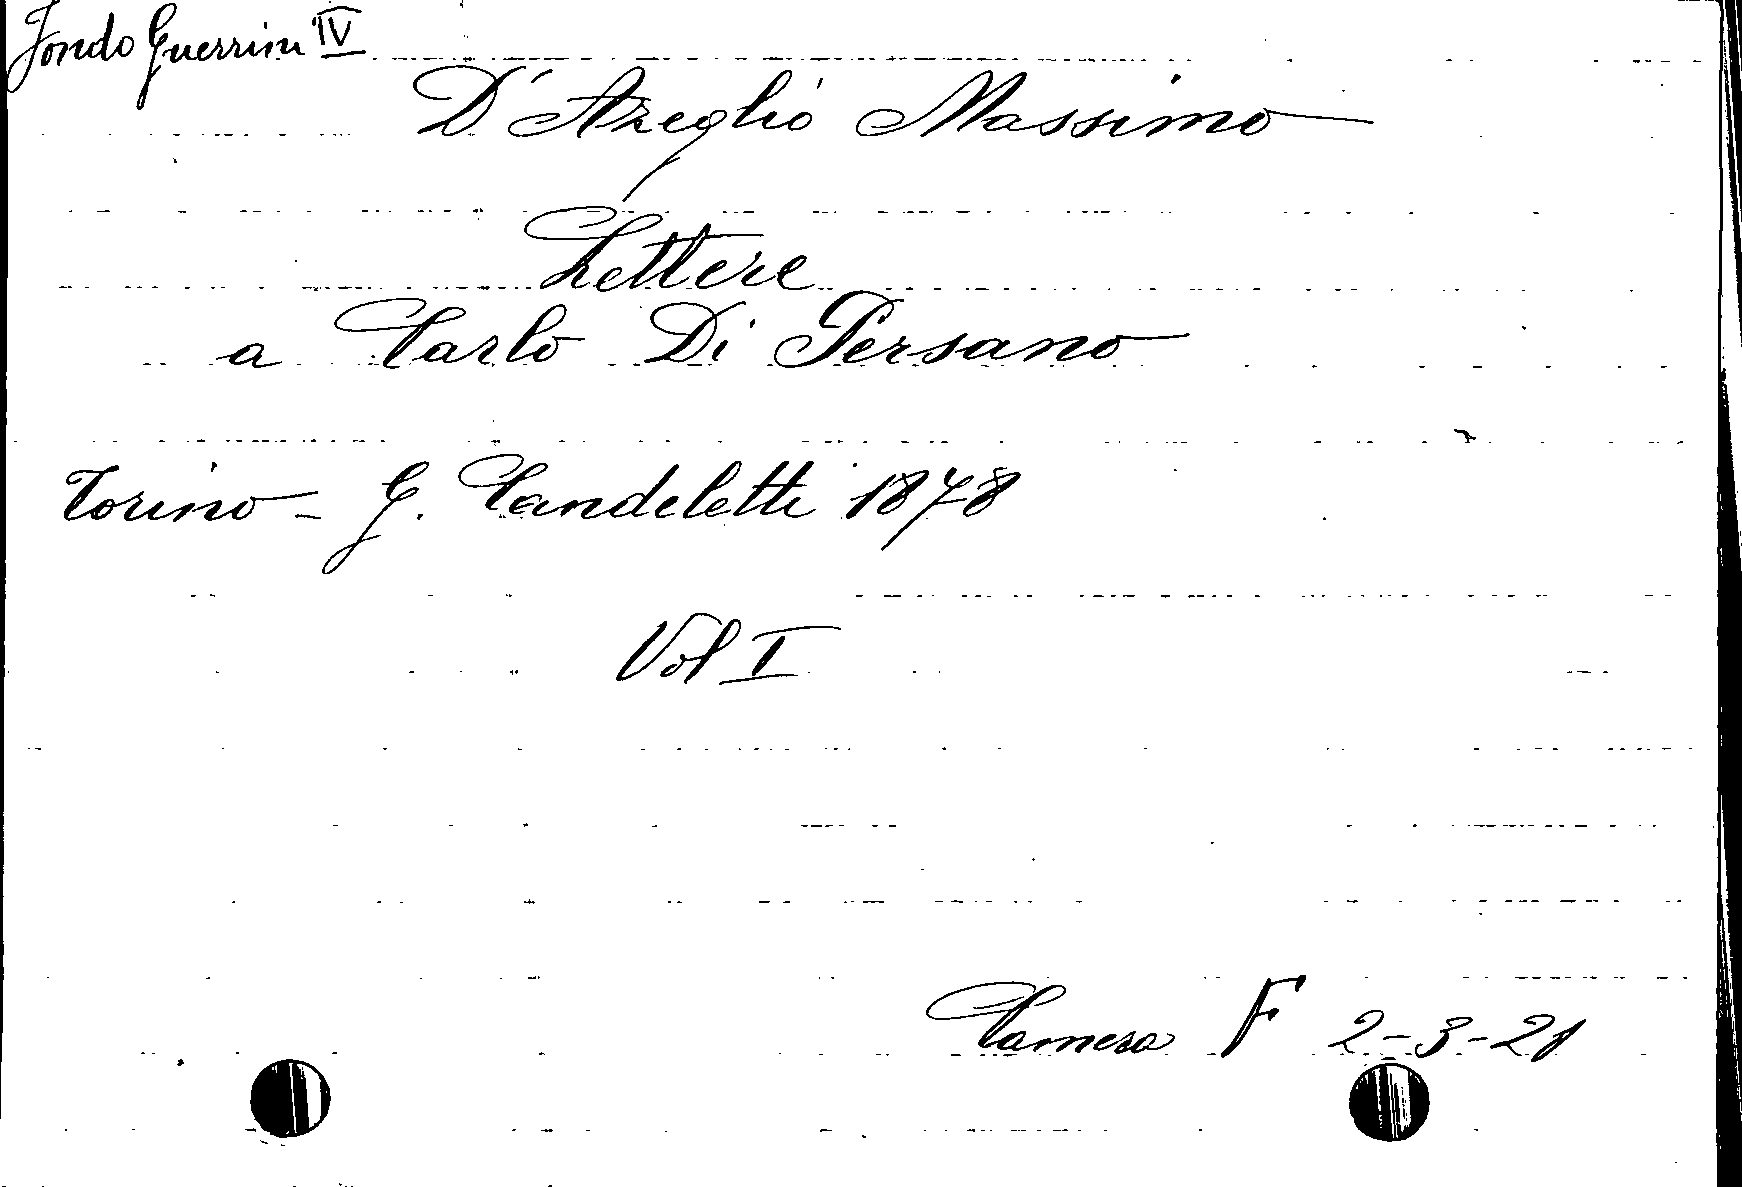 Fondo Guerrini IV
D'Azeglio Massimo
Lettere
a Carlo Di Persano
Torino - G. Candeletti 1878
Vol I
Camera F 2-3-21